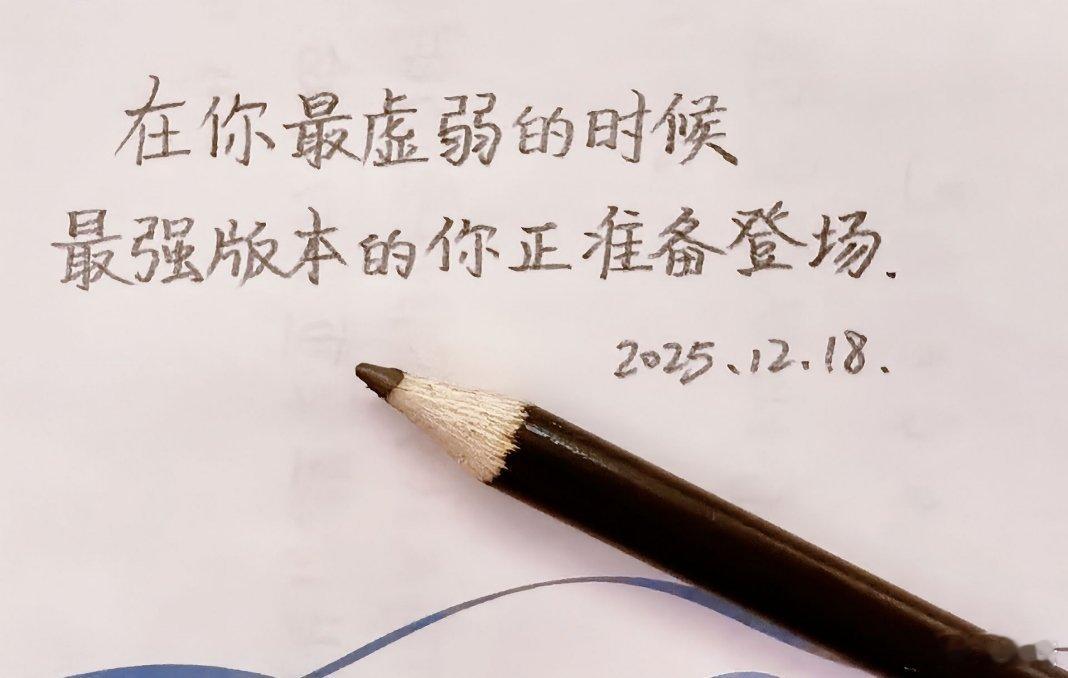 在你最虚弱的时候
最强版本的你正准备登场.
2025.12.18.